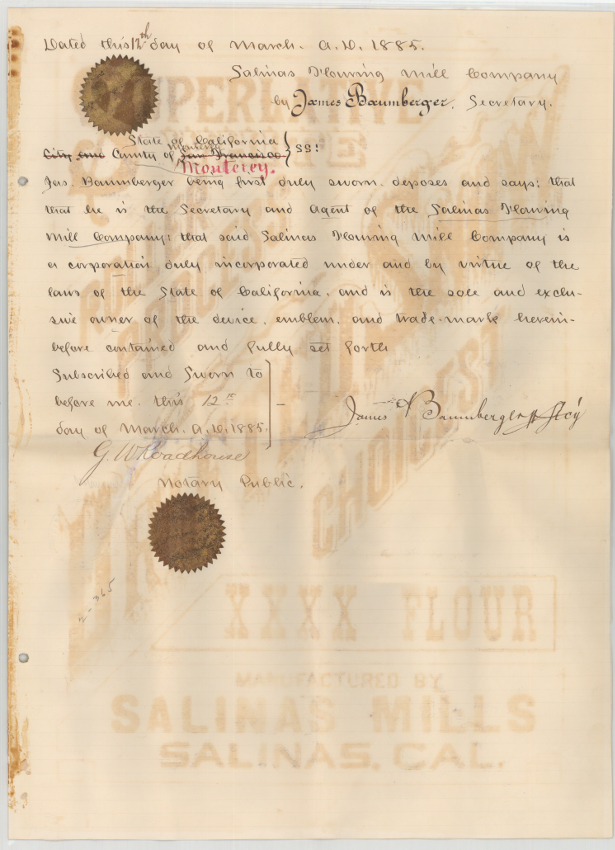 Dated this 12th day of March. A.D. 1885.
Salinas Flouring Mill Company
by James Baumberger, Secretary.
State of California
City and County of San Francisco } SS:
Monterey
Monterey.
Jas. Baumberger being first duly sworn, deposes and says: that
that he is the Secretary and Agent of the Salinas Flouring
Mill Company: that said Salinas Flouring Mill Company is
a corporation, duly incorporated under and by virtue of the
laws of the State of California, and is the sole and exclu-
sive owner of the device, emblem, and trade-mark herein-
before contained and fully set forth
Subscribed and Sworn to
before me this 12th
day of March. A.D. 1885.
James Baumberger Secy
G W Roadhouse
Notary Public.
2-365
SUPERLATIVE
CHOICEST
XXXX FLOUR
MANUFACTURED BY
SALINAS MILLS
SALINAS, CAL.